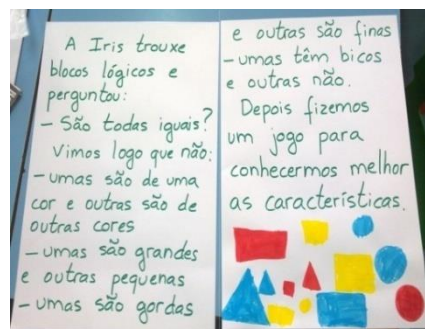 A Iris trouxe
blocos lógicos e
perguntou:
– São todas iguais?
Vimos logo que não:
– umas são de uma
cor e outras são de
outras cores
– umas são grandes
e outras pequenas
– umas são gordas
e outras são finas
– umas têm bicos
e outras não.
Depois fizemos
um jogo para
conhecermos melhor
as características.